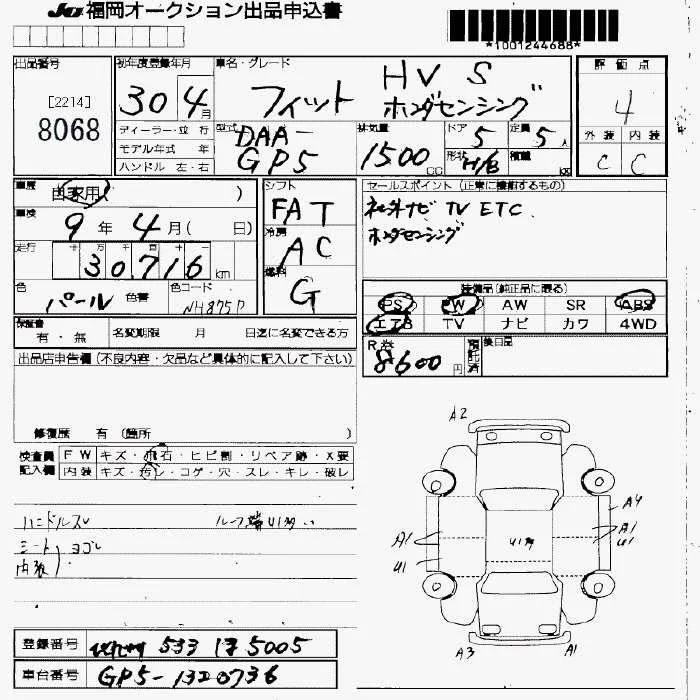 JU 福岡オークション出品申込書
*1001244688*
出品番号
[2214]
8068
初年度登録年月
30 4月
車名・グレード
HV S
フィット ホンダセンシング
評価点
4
外装 内装
C C
ディーラー・並行
モデル年式 年
ハンドル 左・右
型式
DAA-
GP5
排気量
1500 CC
ドア 5
定員 5人
形状 H/B
積載 kg
車歴
自家用( )
車検
9年 4月( 日)
走行
十 万 千 百 十
30,716 km
色
パール
色替
色コード
NH875P
シフト
FAT
冷房
AC
燃料
G
セールスポイント (正常に機能するもの)
社外ナビ TV ETC
ホンダセンシング
装備品(純正品に限る)
PS PW AW SR ABS
エアB TV ナビ カワ 4WD
保証書
有・無
名変期限 月 日迄に名変できる方
R券
8600円
預託済
後日品
出品店申告欄(不良内容・欠品など具体的に記入して下さい)
修復歴 有 (箇所 )
検査員記入欄
FW キズ・飛石・ヒビ割・リペア跡・X要
内装 キズ・汚レ・コゲ・穴・スレ・キレ・破レ
ハンドルスレ
ルーフ端U1多い
シート
内張
ヨゴレ
A2
A4
A1
A1
U1
U1
U1多
A3
A1
登録番号
533 5005
車台番号
GP5-1320736